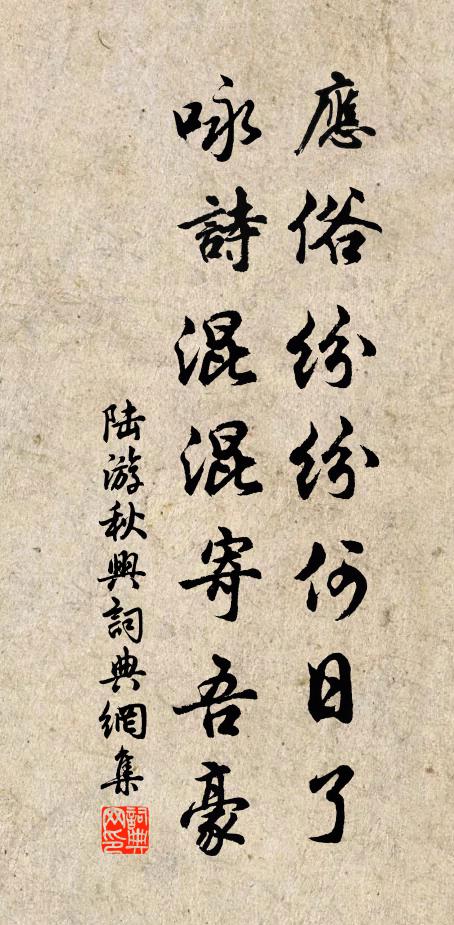 應俗紛紛何日了
咏詩混混寄吾豪
陸游秋興詞典網集
詞典網印